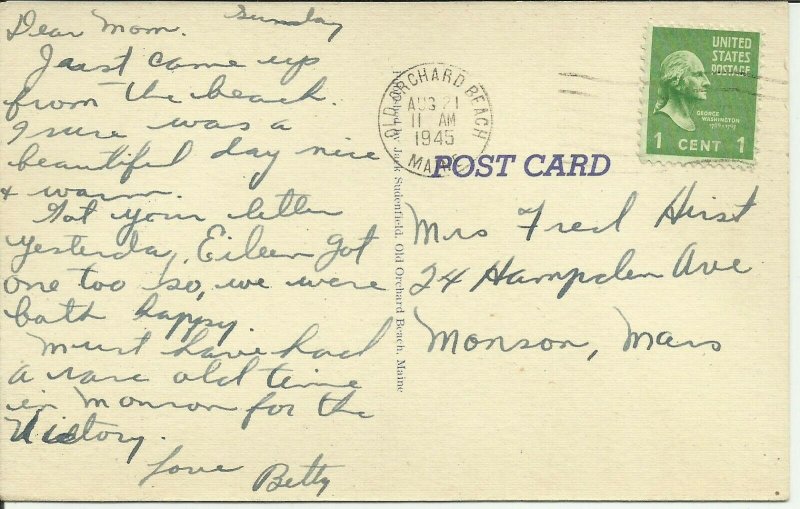 Dear Mom. Sunday
Just came up
from the beach.
I sure was a
beautiful day nice
& warm.
Got your letter
yesterday, Eileen got
one too so, we were
both happy.
Must have had
a rare old time
in Monson for the
Victory.
Love Betty
Jack Sudenfield, Old Orchard Beach, Maine
OLD ORCHARD BEACH
AUG 21
11 AM
1945
MAINE
UNITED
STATES
POSTAGE
GEORGE
WASHINGTON
1789-1797
1 CENT 1
POST CARD
Mrs Fred Hirst
24 Hampden Ave
Monson, Mass